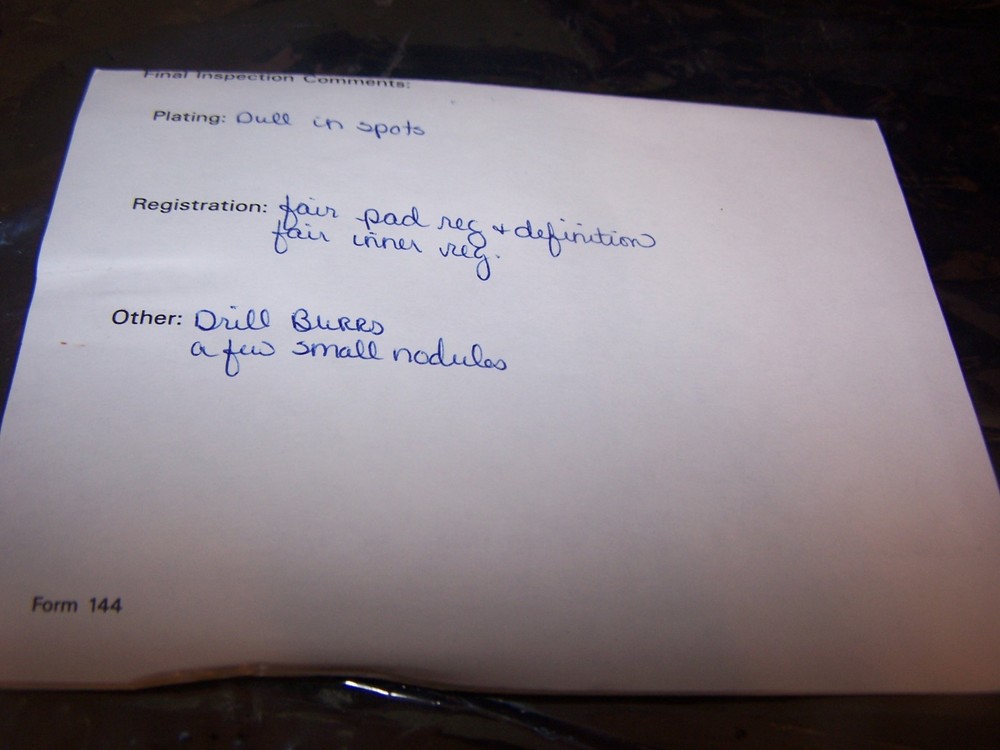 Final Inspection Comments:
Plating: Dull in spots
Registration: fair pad reg + definition
fair inner reg.
Other: Drill Burrs
a few small nodules
Form 144